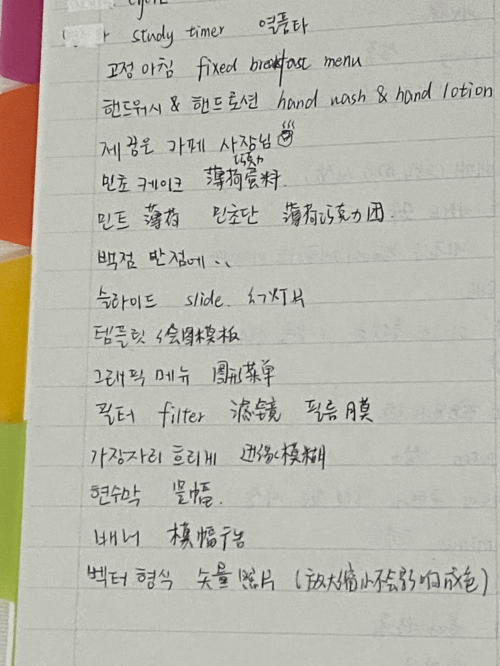 cycle
study timer 열품타
고정아침 fixed breakfast menu
핸드워시 & 핸드로션 hand wash & hand lotion
제 꿈은 카페 사장님
巧克力
민초 케이크 薄荷蛋料.
민트 薄荷 민초단 薄荷巧克力团.
백점 만점에..
슬라이드 slide. 幻灯片
템플릿 绘图模板
그래픽 메뉴 图形菜单
필터 filter 滤镜 필름 膜
가장자리 흐리게 边缘模糊
현수막 竖幅.
배너 横幅广告
벡터 형식 矢量照片 (放大缩小不会影响成色)